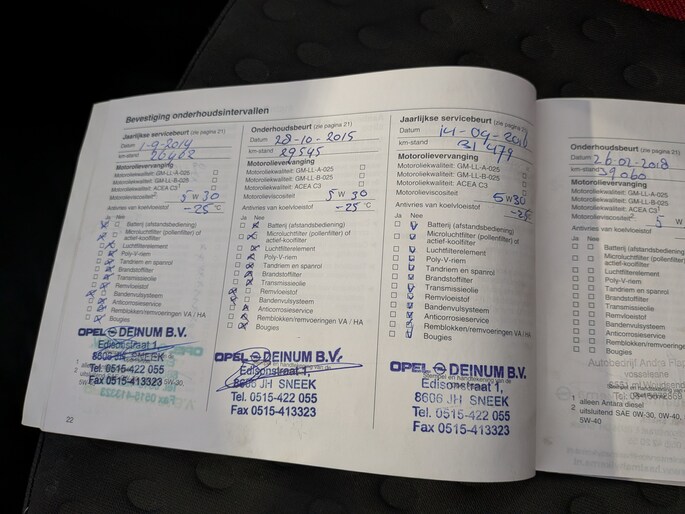 Bevestiging onderhoudsintervallen
Jaarlijkse servicebeurt (zie pagina 21)
Datum 1-9-2014
km-stand 26462
Motorolievervanging
Motoroliekwaliteit: GM-LL-A-025
Motoroliekwaliteit: GM-LL-B-025
Motoroliekwaliteit: ACEA C3
Motorolieviscositeit 5 W 30
Antivries van koelvloeistof -25 °C
Ja Nee
Batterij (afstandsbediening)
Microluchtfilter (pollenfilter) of
actief-koolfilter
Luchtfilterelement
Poly-V-riem
Tandriem en spanrol
Brandstoffilter
Transmissieolie
Remvloeistof
Bandenvulsysteem
Anticorrosieservice
Remblokken/remvoeringen VA / HA
Bougies
OPEL DEINUM B.V.
Edisonstraat 1,
8606 JH SNEEK
Tel. 0515-422 055
Fax 0515-413323
22
Onderhoudsbeurt (zie pagina 21)
Datum 28-10-2015
km-stand 29545
Motorolievervanging
Motoroliekwaliteit: GM-LL-A-025
Motoroliekwaliteit: GM-LL-B-025
Motoroliekwaliteit: ACEA C3
Motorolieviscositeit 5 W 30
Antivries van koelvloeistof -25 °C
Ja Nee
Batterij (afstandsbediening)
Microluchtfilter (pollenfilter) of
actief-koolfilter
Luchtfilterelement
Poly-V-riem
Tandriem en spanrol
Brandstoffilter
Transmissieolie
Remvloeistof
Bandenvulsysteem
Anticorrosieservice
Remblokken/remvoeringen VA / HA
Bougies
OPEL DEINUM B.V.
Edisonstraat 1,
8606 JH SNEEK
Tel. 0515-422 055
Fax 0515-413323
Jaarlijkse servicebeurt (zie pagina
Datum 14-09-2016
km-stand 31479
Motorolievervanging
Motoroliekwaliteit: GM-LL-A-025
Motoroliekwaliteit: GM-LL-B-025
Motoroliekwaliteit: ACEA C3
Motorolieviscositeit 5 W 30
Antivries van koelvloeistof -25
Ja Nee
Batterij (afstandsbediening)
Microluchtfilter (pollenfilter) of
actief-koolfilter
Luchtfilterelement
Poly-V-riem
Tandriem en spanrol
Brandstoffilter
Transmissieolie
Remvloeistof
Bandenvulsysteem
Anticorrosieservice
Remblokken/remvoeringen VA / HA
Bougies
OPEL DEINUM B.V.
Edisonstraat 1,
8606 JH SNEEK
Tel. 0515-422 055
Fax 0515-413323
Onderhoudsbeurt (zie pagina
Datum 26-02-2018
km-stand 39060
Motorolievervanging
Motoroliekwaliteit: GM-LL-A-025
Motoroliekwaliteit: GM-LL-B-025
Motoroliekwaliteit: ACEA C3
Motorolieviscositeit 5 W
Antivries van koelvloeistof
Ja Nee
Batterij (afstandsbediening)
Microluchtfilter (pollenfilter) of
actief-koolfilter
Luchtfilterelement
Poly-V-riem
Tandriem en spanrol
Brandstoffilter
Transmissieolie
Remvloeistof
Bandenvulsysteem
Anticorrosieservice
Remblokken/remvoeringen
Bougies
Autobedrijf Andre
1 alleen Antara diesel
2 uitsluitend SAE 0W-30, 0W-40,
5W-40